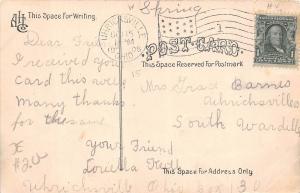 "Spring
This Space For Writing.
UHRICHSVILLE
POST-CARD.
This Space Reserved For Postmark
Dear
I received your
card this week
Many thanks
for the same
Mrs Grace Barnes
Uhrichsville
South Wardell
Your Friend
Louella
This Space For Address Only.
Uhrichsville Ohio Box 30